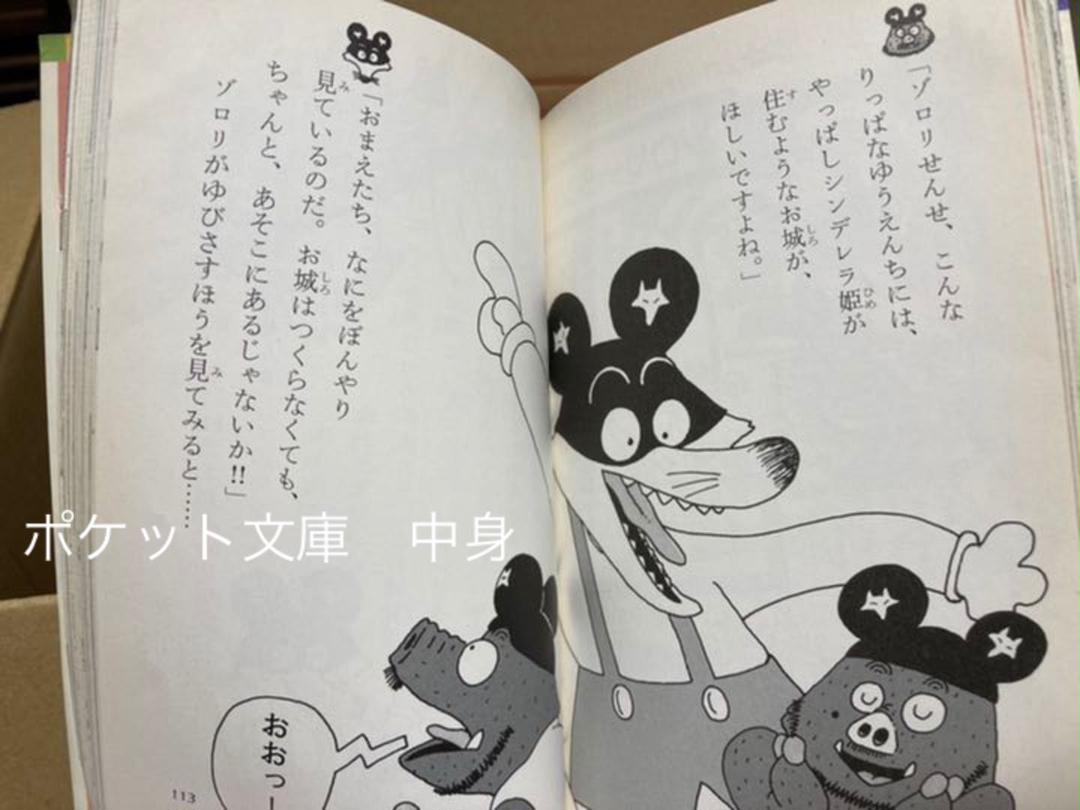 「ゾロリせんせ、こんな
りっぱなゆうえんちには、
やっぱしシンデレラ姫が
住むようなお城が、
ほしいですよね。」
「おまえたち、なにをぼんやり
見ているのだ。お城はつくらなくても、
ちゃんと、あそこにあるじゃないか!!」
ゾロリがゆびさすほうを見てみると……
おおっー
113
ポケット文庫　中身